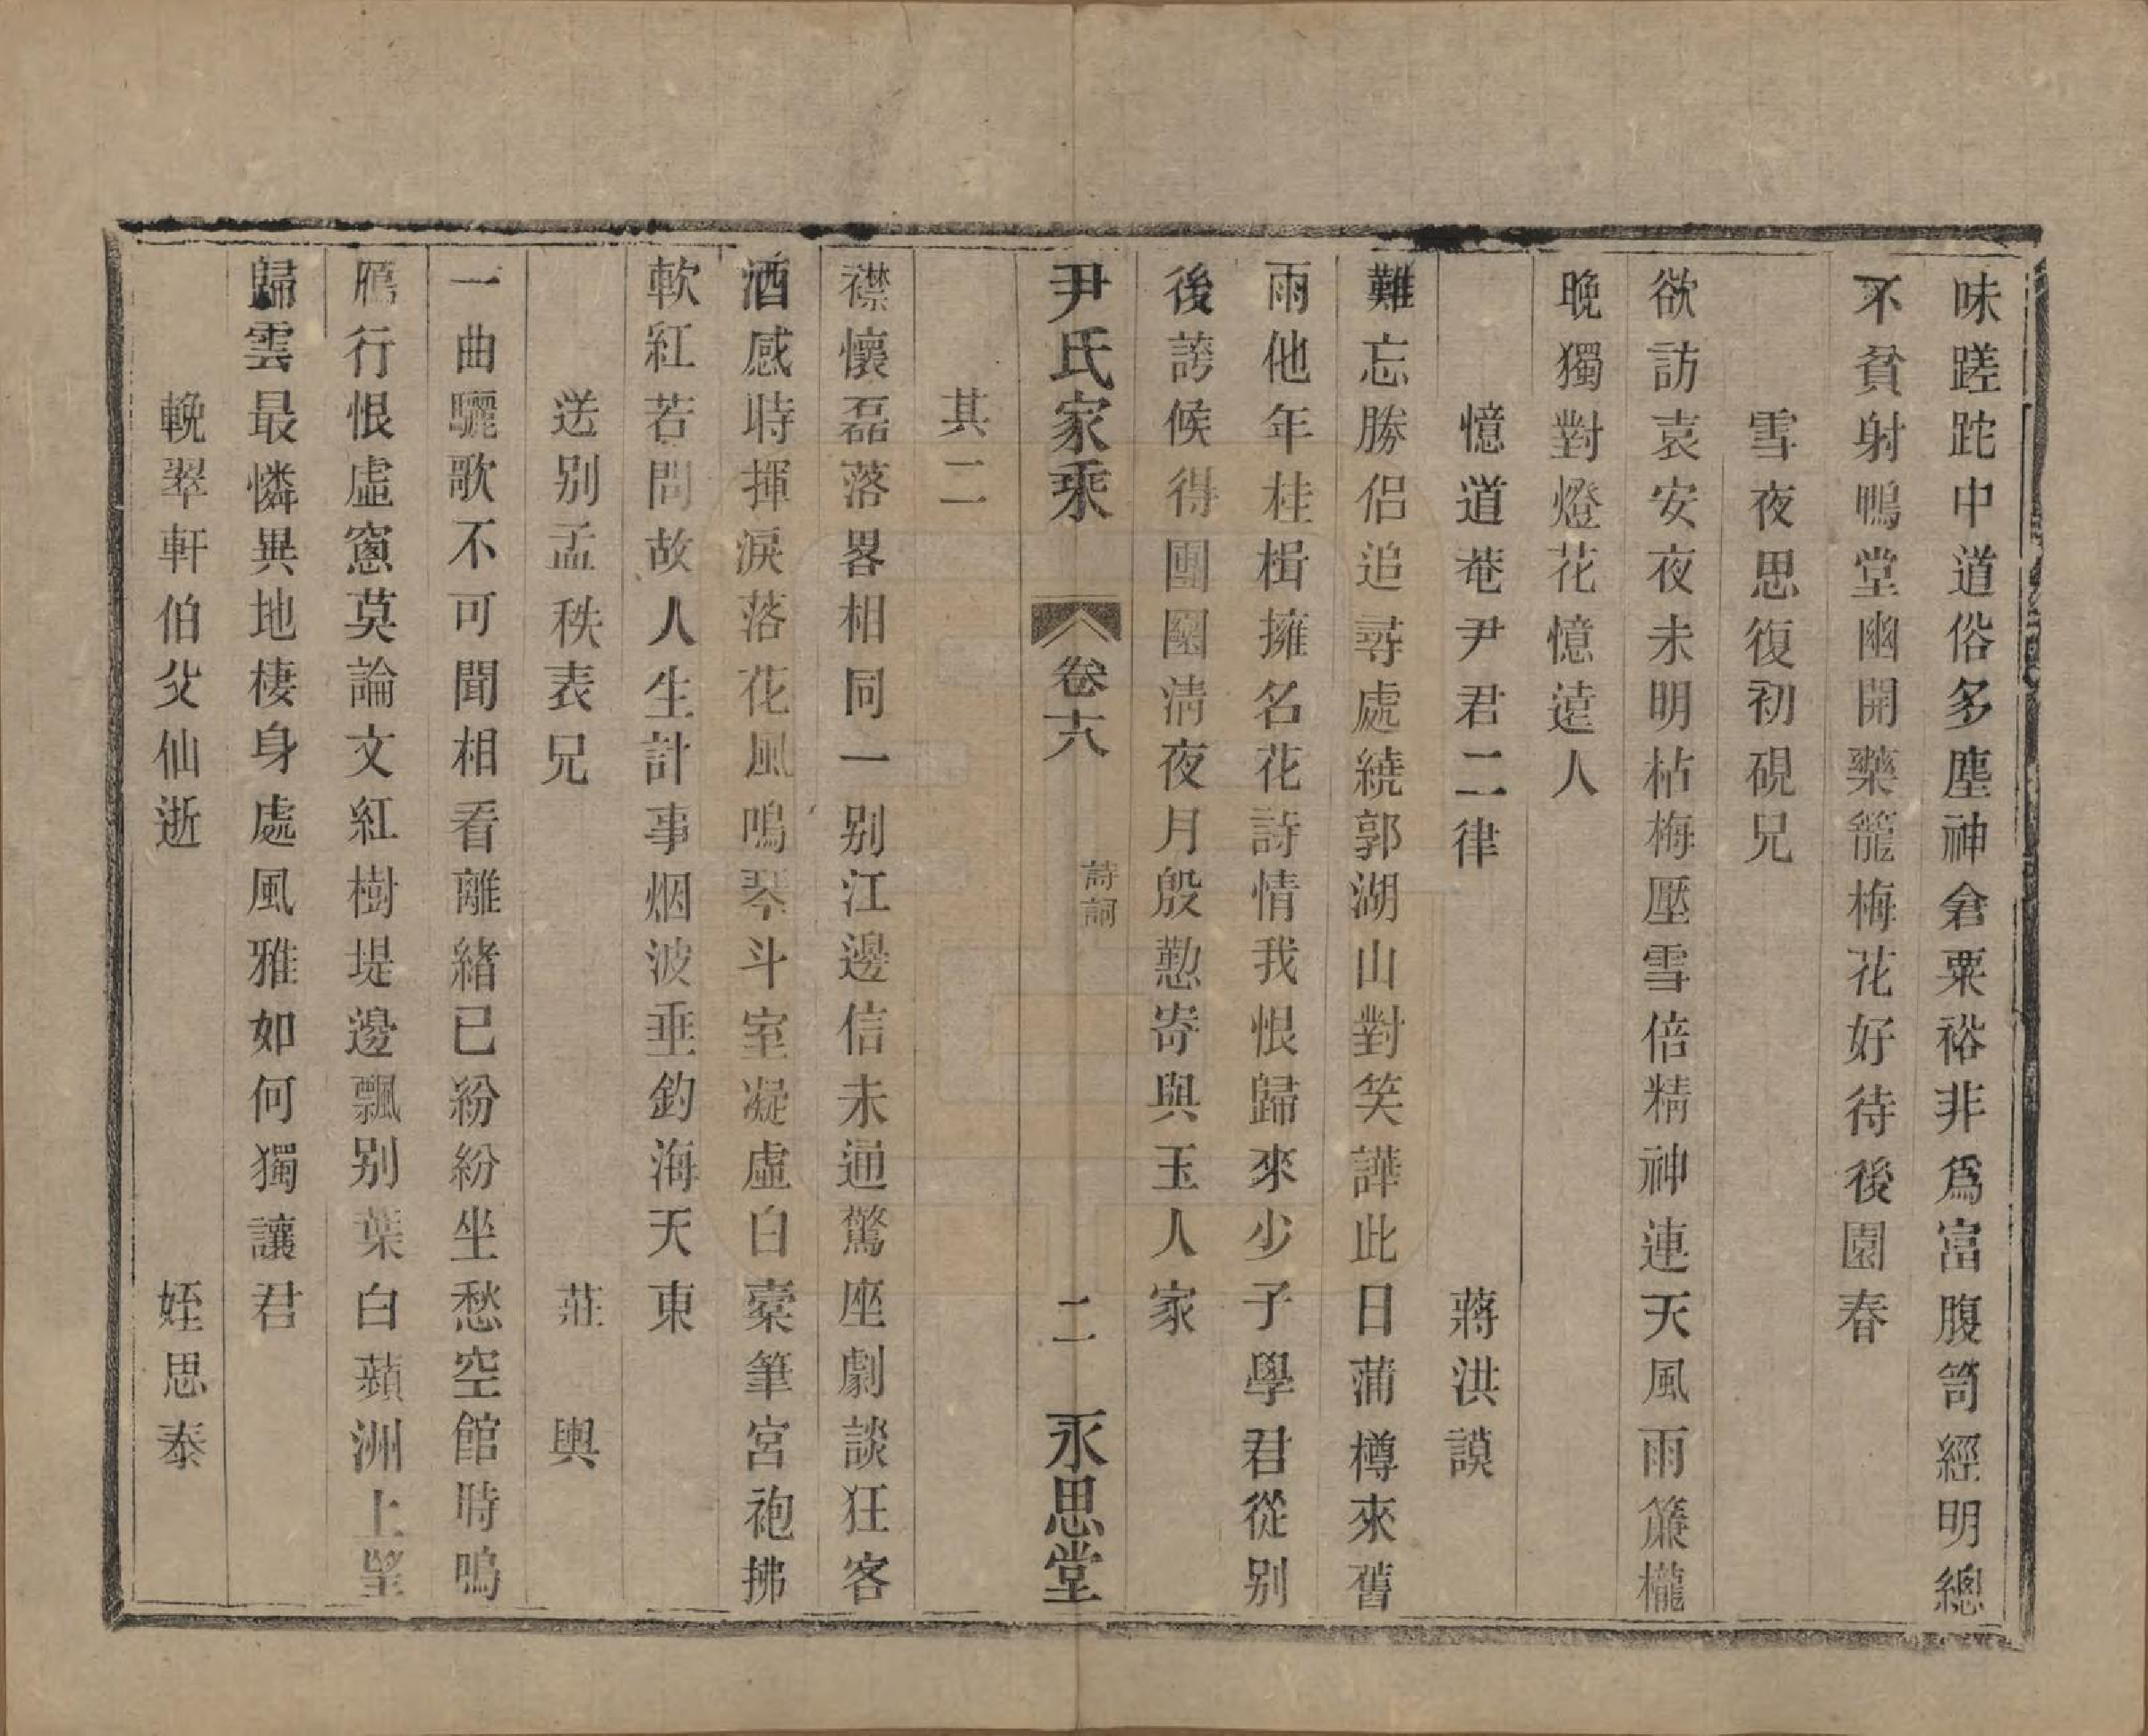 味蹉跎中道俗多塵神倉粟裕非爲富腹笥經明總
不貧射鴨堂幽開藥籠梅花好待後園春
雪夜思復初硯兄
欲訪袁安夜未明枯梅壓雪倍精神連天風雨簾櫳
晚獨對燈花憶遠人
憶道菴尹君二律　蔣洪謨
難忘勝侶追尋處繞郭湖山對笑譁此日蒲樽來舊
雨他年桂楫擁名花詩情我恨歸來少子學君從別
後誇候得團圞淸夜月殷懃寄與玉人家
尹氏家乘　卷十六　詩詞　二　永思堂
其二
襟懷磊落畧相同一別江邊信未通驚座劇談狂客
酒感時揮淚落花風鳴琴斗室凝虛白橐筆宮袍拂
軟紅若問故人生計事烟波垂釣海天東
送別孟秩表兄　莊輿
一曲驪歌不可聞相看離緒已紛紛坐愁空館時鳴
鴈行恨虛窻莫論文紅樹堤邊飄別葉白蘋洲上望
歸雲最憐異地棲身處風雅如何獨讓君
輓翠軒伯父仙逝　姪思泰